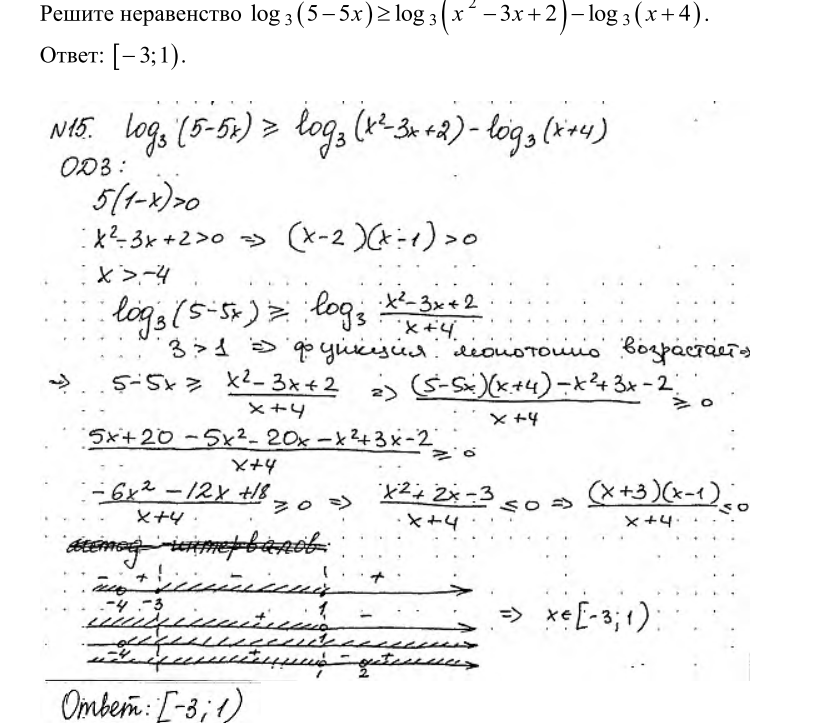 Решите неравенство log₃(5−5x) ≥ log₃(x²−3x+2)−log₃(x+4).
Ответ: [−3;1).
N15. log₃(5-5x) ≥ log₃(x²-3x+2) - log₃(x+4)
ОДЗ:
5(1-x)>0
x²-3x+2>0 => (x-2)(x-1)>0
x>-4
log₃(5-5x) ≥ log₃ (x²-3x+2)/(x+4)
3>1 => функция монотонно возрастает =>
=> 5-5x ≥ (x²-3x+2)/(x+4) => ((5-5x)(x+4)-x²+3x-2)/(x+4) ≥ 0
(5x+20-5x²-20x-x²+3x-2)/(x+4) ≥ 0
(-6x²-12x+18)/(x+4) ≥ 0 => (x²+2x-3)/(x+4) ≤ 0 => ((x+3)(x-1))/(x+4) ≤ 0
метод интервалов:
- + - +
-4 -3 1
+ -
1
-4 + - +
1 2
=> x∈[-3;1)
Ответ: [-3;1)